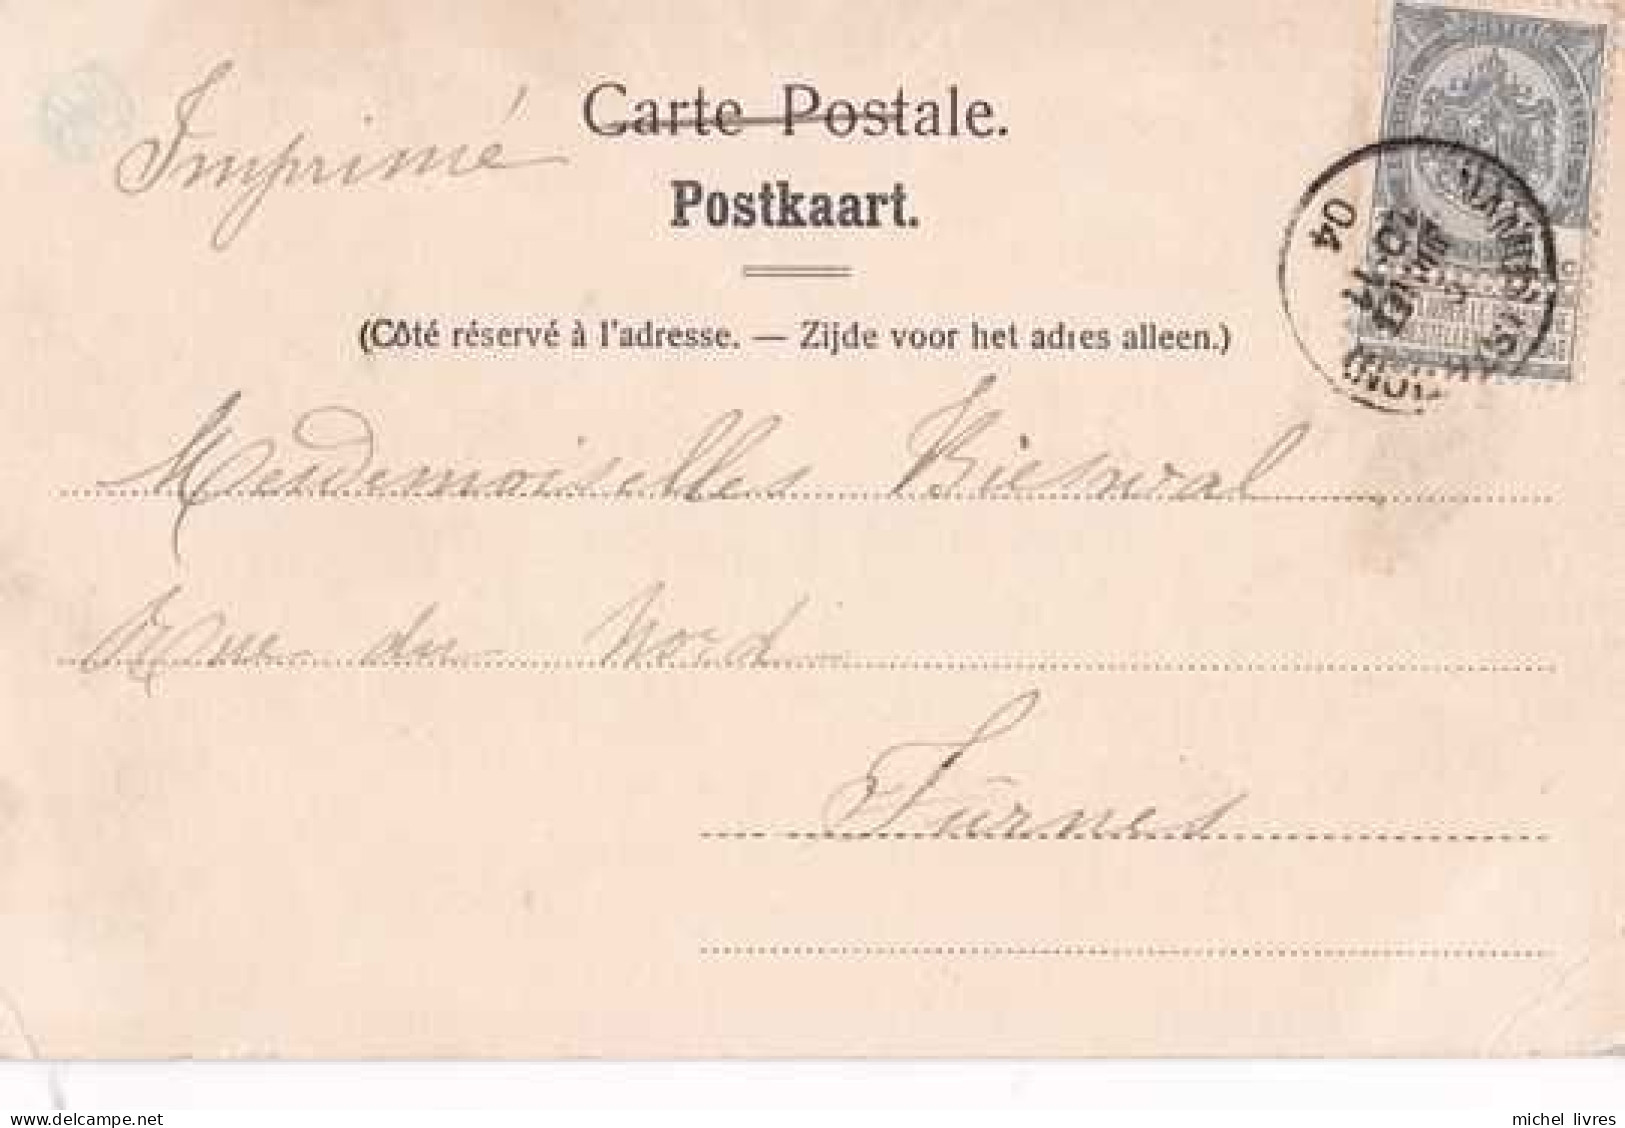 Imprimé
Carte Postale.
Postkaart.
(Côté réservé à l'adresse. — Zijde voor het adres alleen.)
04
10-11
Mesdemoiselles Bieswal
Rue du Nord
Furnes
michel_livres